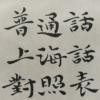 普通話
上海話
對照表